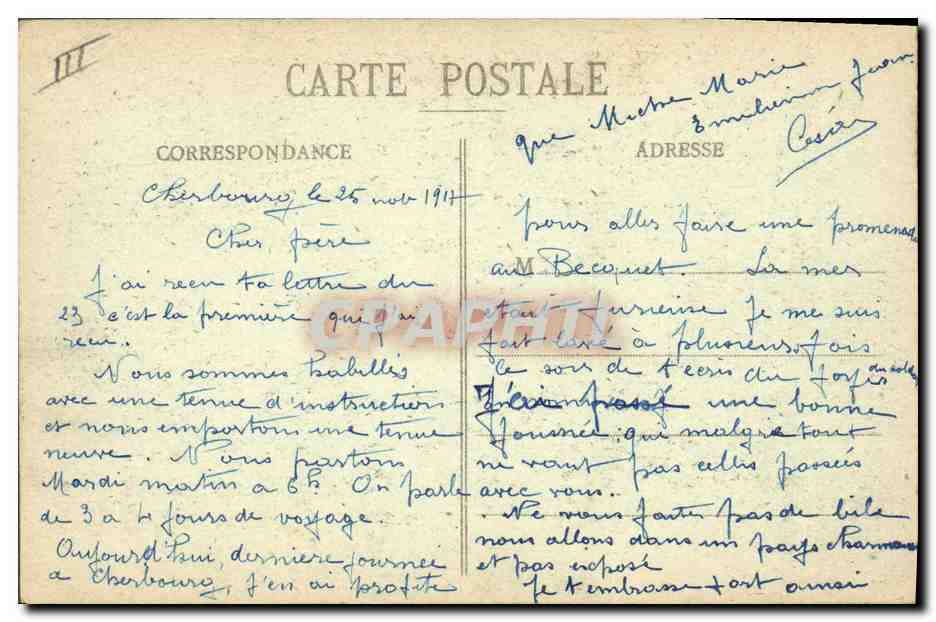 III
CARTE POSTALE
CORRESPONDANCE
Cherbourg le 25 nov 1917
Cher père
J'ai reçu ta lettre du
23 c'est la première que j'ai
reçu.
Nous sommes habillés
avec une tenue d'instruction
et nous emportons une tenue
neuve. Nous partons
Mardi matin a 6h. On parle
de 3 a 4 jours de voyage.
Aujourd'hui, dernière journée
a Cherbourg, j'en ai profité
ADRESSE
M
pour aller faire une promenade
au Becquet. La mer
etait furieuse je me suis
fait lavé à plusieurs fois
ce soir je t'ecris du foyer du soldat
J'ai passé une bonne
journée que malgre tout
ne vaut pas celles passées
avec vous.
Ne vous faites pas de bile
nous allons dans un pays charmant
et pas exposé
Je t'embrasse fort ainsi
que Mère Marie
Emilienne, Jean
César
CPAPHIL